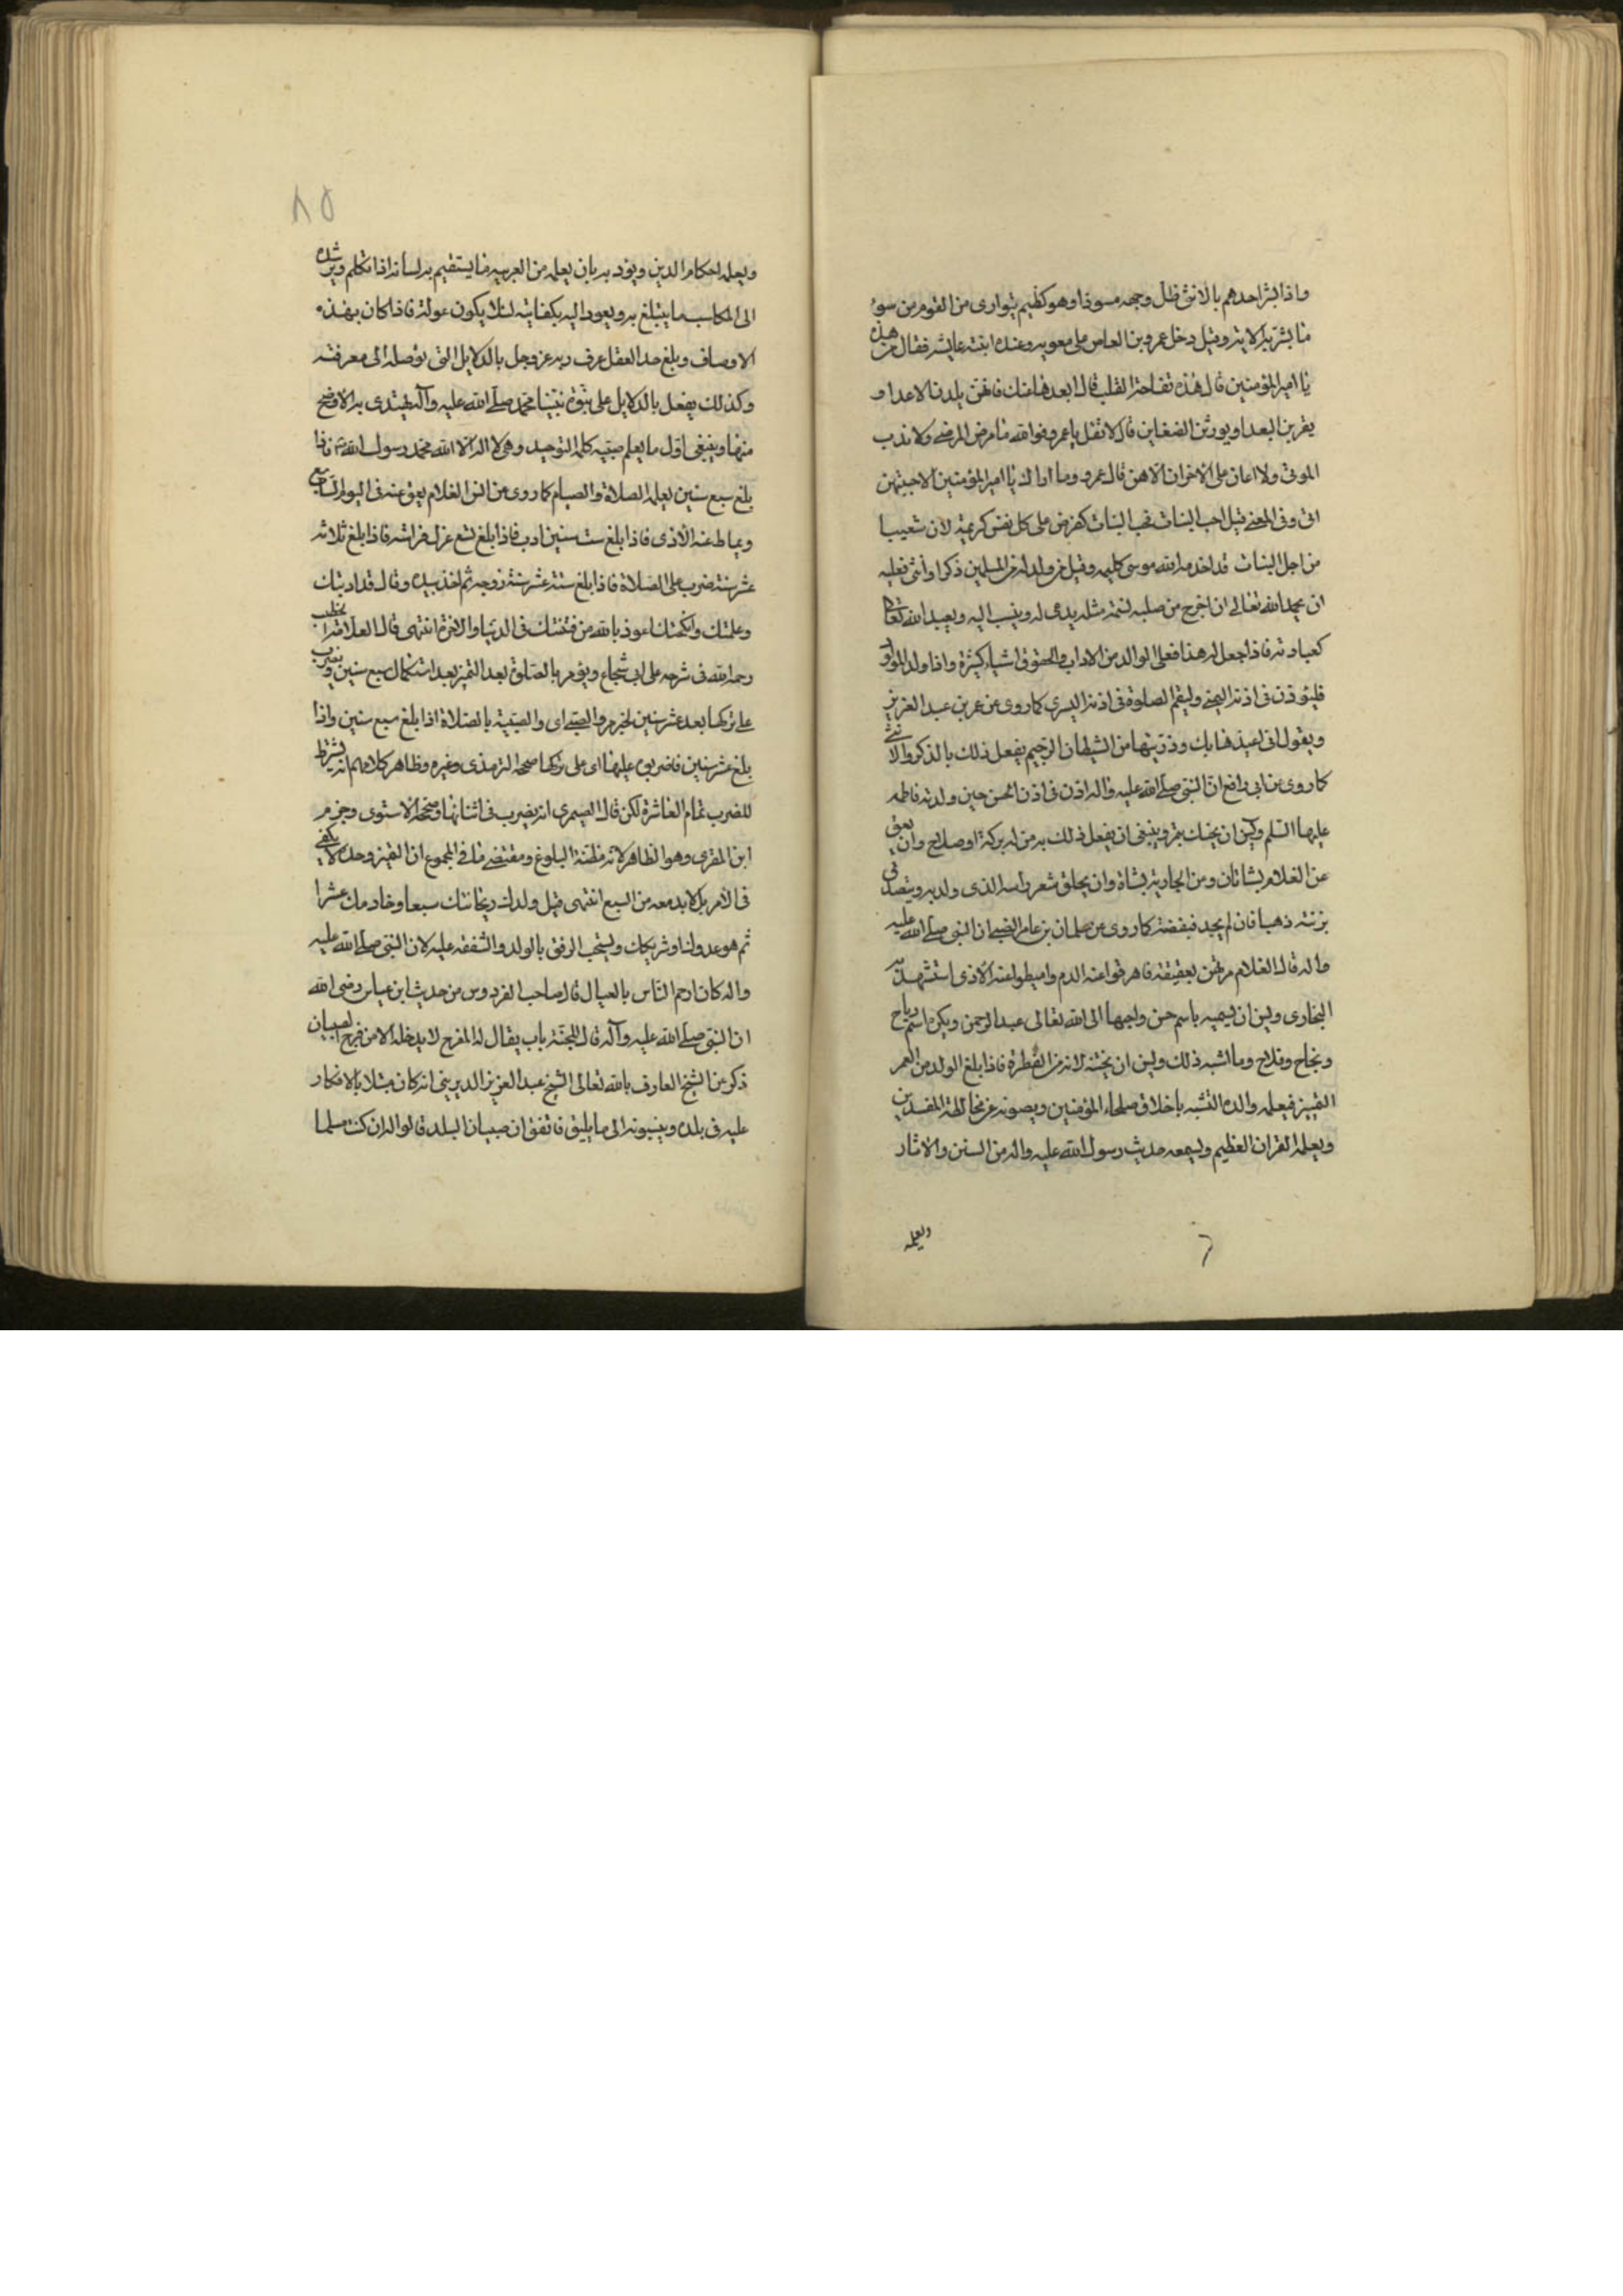 واذا بشر احدهم بالانثى ظل وجهه مسودا وهو كظيم يتوارى من القوم من سوء
ما بشر به الاية وقيل دخل عمرو بن العاص على معويه وعنده ابنته عايشه فقال من هذه
يا امير المؤمنين قال هذه تفاحة القلب قال ابعدها عنك فانهن يلدن الاعدا و
يقربن البعدا ويورثن الضغاين قال لا تقل يا عمرو فوالله ما مرض المرضى ولا ندب
الموتى ولا اعان على الاخزان الا هن قال عمرو وما اراك يا امير المؤمنين الا حببتهن
الى وفى المعنى قيل احب البنات فحب البنات كفرض على كل نفس كريمة لان شعيبا
من اجل البنات قد اخدمه الله موسى كليمه وقيل من ولد له من المسلمين ذكرا وانثى فعليه
ان يحمد الله تعالى ان اخرج من صلبه نسمة مثله يدعى له وينسب اليه ويعبد الله تعالى
كعبادته فاذا جعل له هذا فعلى الوالد من الاداب والحقوق اشياء كثيرة واذا ولد المولود
فليؤذن فى اذنه اليمنى وليقم الصلوة فى اذنه اليسرى كما روى عن عمر بن عبد العزيز
ويقول انى اعيذها بك وذريتها من الشيطان الرجيم يفعل ذلك بالذكر والانثى
كما روى عن ابى رافع ان النبى صلى الله عليه واله اذن فى اذن الحسن حين ولدته فاطمه
عليها السلم ويسن ان يحنك بتمر وينبغى ان يفعل ذلك به من له بركة او صلاح وان يعق
عن الغلام بشاتان ومن الجارية بشاة وان يحلق شعر راسه الذى ولد به ويتصدق
بزنته ذهبا فان لم يجد فبفضة كما روى عن سلمان بن عامر الضبى ان النبى صلى الله عليه
واله قال الغلام مرتهن بعقيقته فاهرقوا عنه الدم واميطوا عنه الاذى استشهد به
البخارى ويسن ان يسميه باسم حسن واحبها الى الله تعالى عبد الرحمن ويكره اسم رباح
ونجاح وفلاح وما اشبه ذلك ويسن ان يختنه لانه من الفطرة فاذا بلغ الولد من العمر
التمييز فيعلمه والده التشبه باخلاق صلحاء المؤمنين ويصونه عن مخالطة المفسدين
ويعلمه القران العظيم ويسمعه حديث رسول الله عليه واله من السنن والاثار
ويعلمه
٨٥
ويعلمه احكام الدين ويؤدبه بان يعلمه من العربيه ما يستقيم به لسانه اذا تكلم ويرشده
الى المكاسب ما يبتلغ به ويعود اليه بكفايته لئلا يكون عولة فاذا كان بهذه
الاوصاف وبلغ حد العقل عرف ربه عز وجل بالدلايل التى توصله الى معرفته
وكذلك يفعل بالدلايل على نبوة نبينا محمد صلى الله عليه وآله ليهتدى به الاوضح
منها وينبغى اول ما يعلم صبيه كلمة التوحيد وهى لا اله الا الله محمد رسول الله ثم فاذا
بلغ سبع سنين يعلمه الصلاة والصيام كما روى من انس الغلام يعق عنه فى اليوم السابع
ويماط عنه الاذى فاذا بلغ ست سنين ادب فاذا بلغ تسع عزل فراشه فاذا بلغ ثلاثه
عشر سنة ضرب على الصلاة فاذا بلغ ستة عشر سنة زوجه ثم اخذ بيده وقال قد ادبتك
وعلمتك وانكحتك اعوذ بالله من فتنتك فى الدنيا والاخرة انتهى قال العلامة الخطيب
رحمه الله فى شرحه على ابى شجاع ويؤمر بالصلوة بعد التميز بعد استكمال سبع سنين ويضرب
على تركها بعد عشر سنين لخبر مروا الصبى اى والصبية بالصلاة اذا بلغ سبع سنين واذا
بلغ عشر سنين فاضربوه عليها اى على تركها صححه الترمذى وغيره وظاهر كلامهم انه يشترط
للضرب تمام العاشرة لكن قال الصيمرى انه يضرب فى اثنائها وصححه الاسنوى وجزم
ابن المقرى وهو الظاهر لانه مظنة البلوغ ومقتضى ما فى المجموع ان التميز وحده لا يكفى
فى الامر بل لا بد معه من السبع انتهى قيل ولدك ريحانتك سبعا وخادمك عشرا
ثم هو عدو لنا وشريكك ويستحب الرفق بالولد والشفقه عليه لان النبى صلى الله عليه
واله كان ارحم الناس بالعيال قال صاحب الفردوس من حديث ابن عباس رضى الله
ان النبى صلى الله عليه وآله قال للجنة باب يقال له المفرح لا يدخله الا من فرح الصبيان
ذكر عن الشيخ العارف بالله تعالى الشيخ عبد العزيز الديرينى انه كان مبتلا بالانكار
عليه فى بلده وينسبونه الى ما يليق فاتفق ان صبيان البلد قالوا له ان كنت مسلما